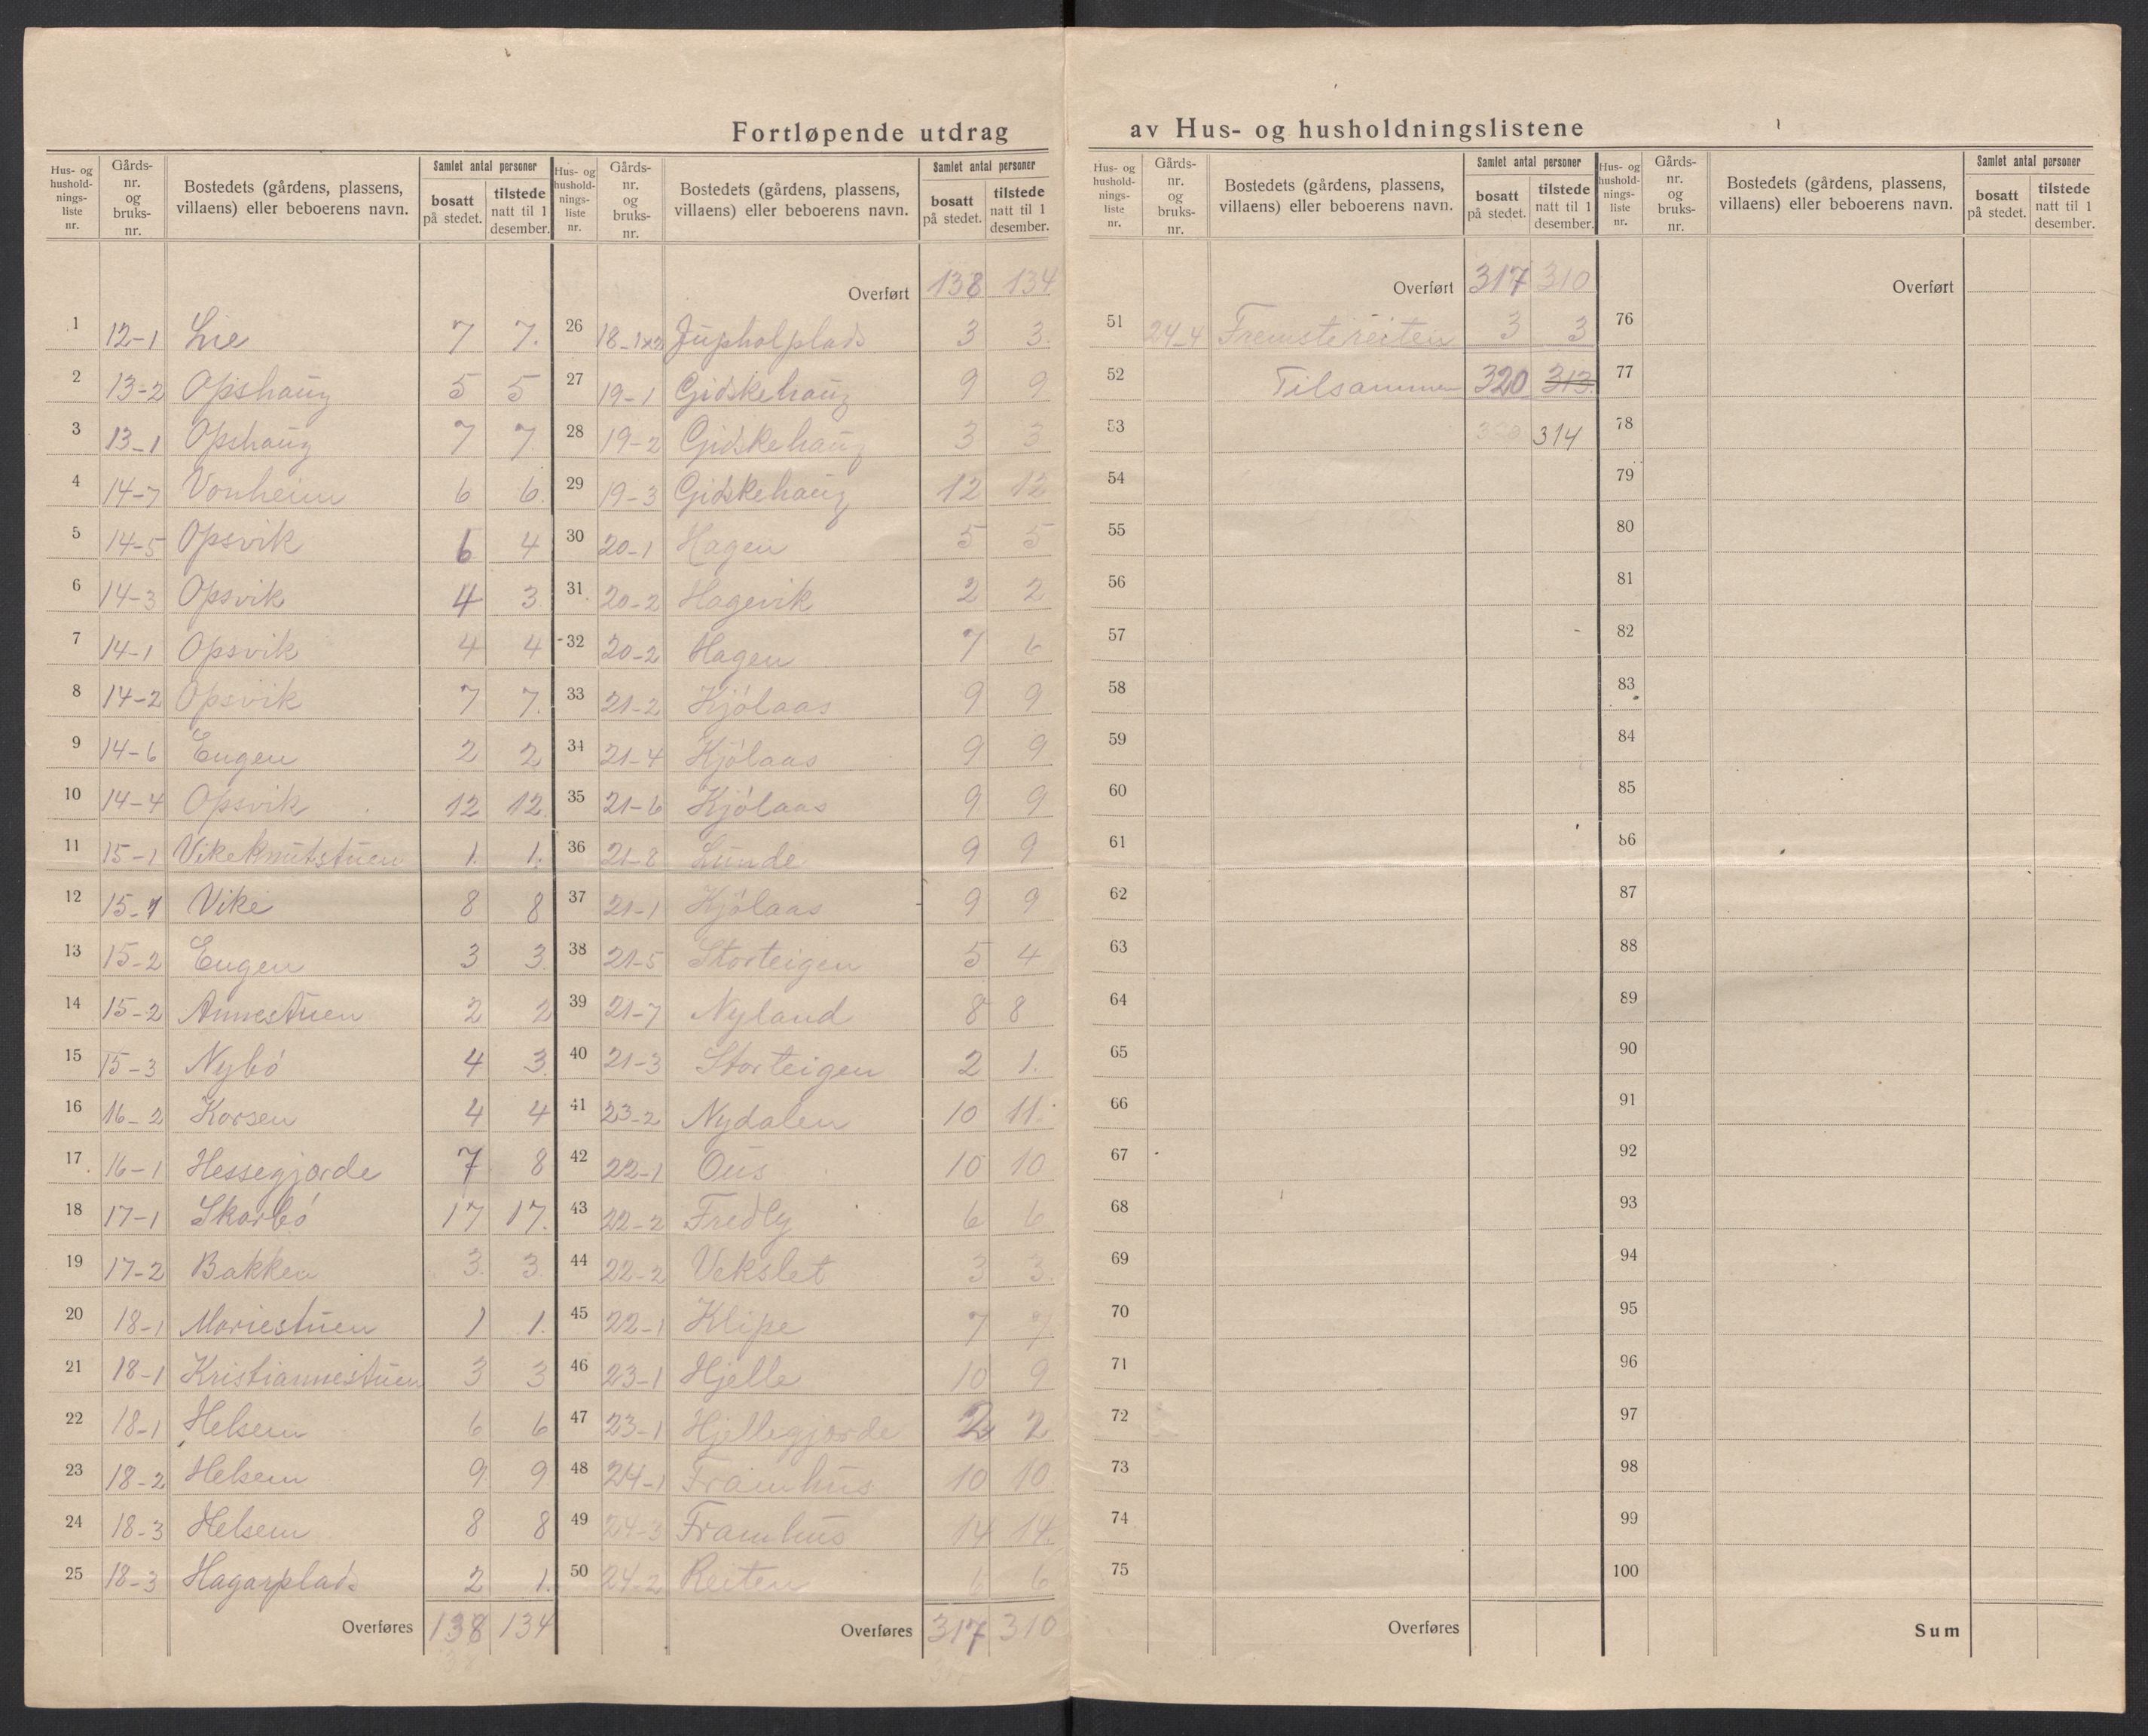 Fortløpende utdrag av Hus- og husholdningslistene
Hus- og hushold-nings-liste nr. | Gårds-nr. og bruks-nr. | Bostedets (gårdens, plassens, villaens) eller beboerens navn. | Samlet antal personer | bosatt på stedet. | tilstede natt til 1 desember.
1 12-1 Lie 7 7.
2 13-2 Opshaug 5 5
3 13-1 Opshaug 7 7
4 14-7 Vonheim 6 6.
5 14-5 Opsvik 6 4
6 14-3 Opsvik 4 3
7 14-1 Opsvik 4 4
8 14-2 Opsvik 7 7.
9 14-6 Engen 2 2
10 14-4 Opsvik 12 12
11 15-1 Vikeknutstuen 1. 1.
12 15-1 Vike 8 8
13 15-2 Engen 3 3
14 15-2 Annestuen 2 2
15 15-3 Nybó 4 3.
16 16-2 Korsen 4 4
17 16-1 Hessegjærde 7 8
18 17-1 Skarbó 17 17.
19 17-2 Bakken 3. 3
20 18-1 Mariestuen 1 1.
21 18-1 Kristiannestuen 3 3
22 18-1 Helsem 6 6
23 18-2 Helsem 9 9
24 18-3 Helsem 8 8
25 18-3 Hagarplads 2 1.
Overføres 138 134
Hus- og hushold-nings-liste nr. | Gårds-nr. og bruks-nr. | Bostedets (gårdens, plassens, villaens) eller beboerens navn. | Samlet antal personer | bosatt på stedet. | tilstede natt til 1 desember.
Overført 138 134
26 18-1x2 Jupholplads 3 3.
27 19-1 Gidskehaug 9 9
28 19-2 Gidskehaug 3 3
29 19-3 Gidskehaug 12 12
30 20-1 Hagen 5 5
31 20-2 Hagevik 2 2
32 20-2 Hagen 7 6
33 21-2 Kjólaas 9 9
34 21-4 Kjólaas 9 9
35 21-6 Kjólaas 9 9
36 21-8 Lunde 9 9
37 21-1 Kjólaas 9 9
38 21-5 Storteigen 5 4
39 21-7 Nyland 8 8
40 21-3 Storteigen 2 1.
41 23-2 Nydalen 10 11.
42 22-1 Ous 10 10
43 22-2 Fredly 6 6
44 22-2 Vekslet 3 3.
45 22-1 Klipe 7 7
46 23-1 Hjelle 10 9
47 23-1 Hjellegjærde 2 2
48 24-1 Framhus 10 10
49 24-3 Framhus 14 14.
50 24-2 Reiten 6 6
Overføres 317 310
Hus- og hushold-nings-liste nr. | Gårds-nr. og bruks-nr. | Bostedets (gårdens, plassens, villaens) eller beboerens navn. | Samlet antal personer | bosatt på stedet. | tilstede natt til 1 desember.
Overført 317 310
51 24-4 Fremstereiten 3 3
52 Tilsammen 320 313.
53 320 314
54
55
56
57
58
59
60
61
62
63
64
65
66
67
68
69
70
71
72
73
74
75
Overføres
Hus- og hushold-nings-liste nr. | Gårds-nr. og bruks-nr. | Bostedets (gårdens, plassens, villaens) eller beboerens navn. | Samlet antal personer | bosatt på stedet. | tilstede natt til 1 desember.
Overført
76
77
78
79
80
81
82
83
84
85
86
87
88
89
90
91
92
93
94
95
96
97
98
99
100
Sum